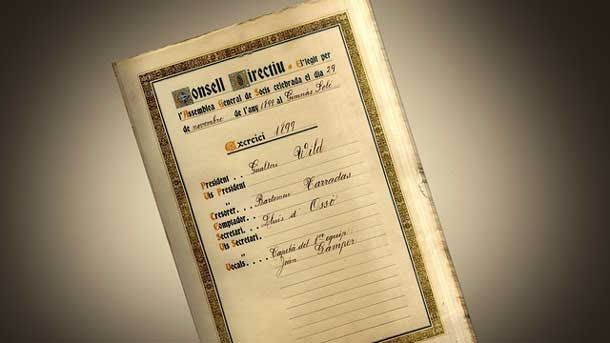 Consell Directiu = El'legit per
l'Assemblea General de Socis celebrada el dia 29
de novembre de l'any 1899 al Gimnas Solé
Exercici 1899
President . . Gualteri Wild
Vis President
"
Tresorer. . . Bartomeu Tarradas
Comptador.
Secretari. . . Lluis d' Ossó
Vis Secretari.
" Capità del 1er equip
Vocals. . . . Joan Gamper